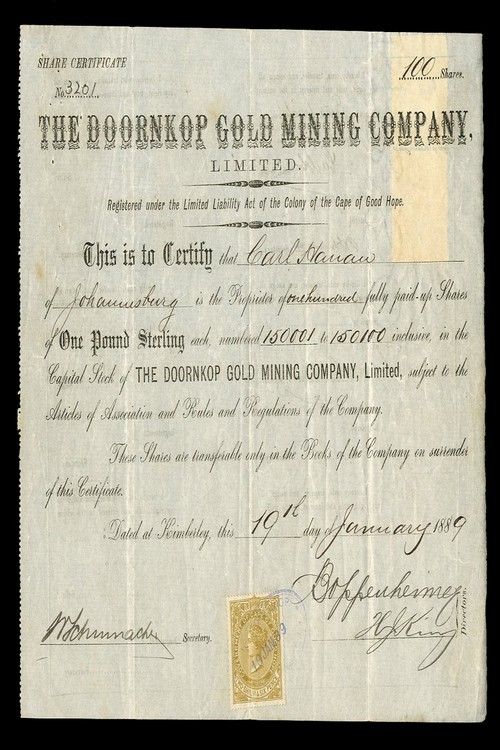 SHARE CERTIFICATE
100 Shares.
No. 3201
THE DOORNKOP GOLD MINING COMPANY,
LIMITED.
Registered under the Limited Liability Act of the Colony of the Cape of Good Hope.
This is to Certify that Carl Hanau
of Johannesburg is the Proprietor of one hundred fully paid-up Shares
of One Pound Sterling each, numbered 150001 to 150100 inclusive, in the
Capital Stock of THE DOORNKOP GOLD MINING COMPANY, Limited, subject to the
Articles of Association and Rules and Regulations of the Company.
These Shares are transferable only in the Books of the Company on surrender
of this Certificate.
Dated at Kimberley, this 19th day of January 1889
Boppenheimer
HJKing
Directors.
WSchumacher Secretary.